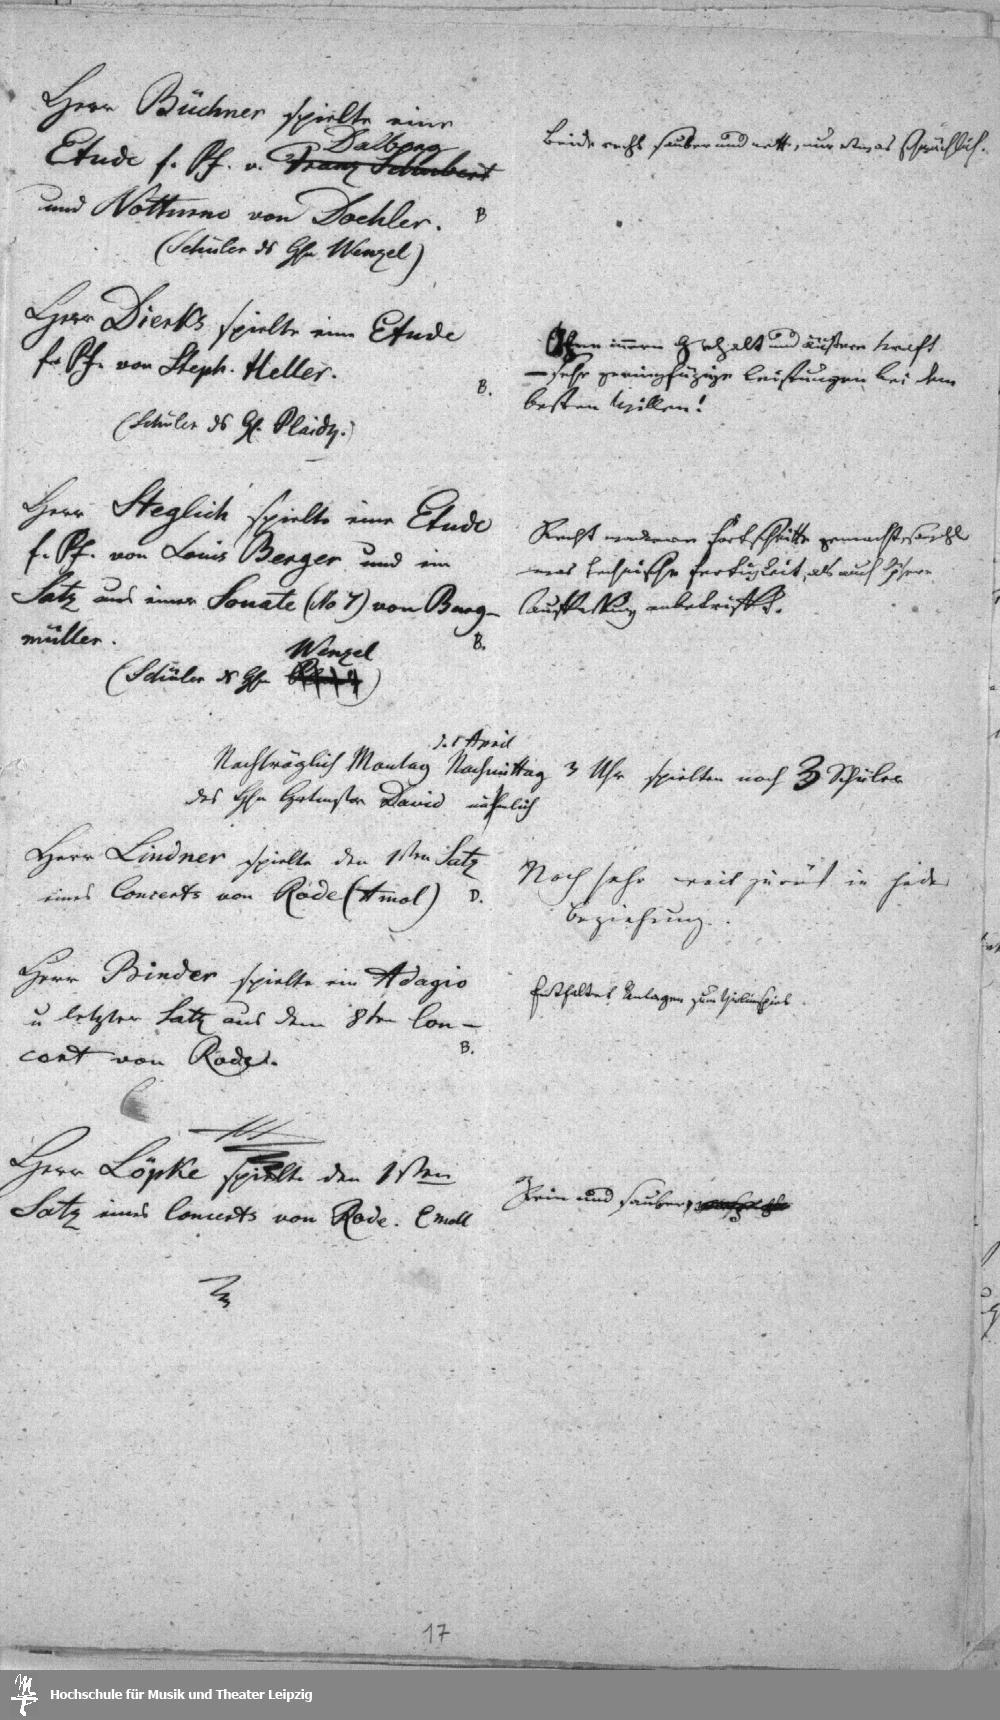 Herr Büchner spielte eine
Dalberg
Etude f. Pf. v. Franz Schubert
und Notturno von Doehler. B
(Schüler ds Hfn Wenzel)
Beide recht sauber und nett, nur etwas
Herr Dierks spielte eine Etude
f. Pf. von Steph. Heller.
B.
(Schüler ds H. Plaidy.)
Ohne innern Gehalt und äußere Kraft
– sehr geringfügige Leistungen bei dem
besten Willen!
Herr Steglich spielte eine Etude
f. Pf. von Louis Berger und ein
Satz aus einer Sonate (No 7) von Burg-
müller. B.
Wenzel
(Schüler ds Hfn)
Recht Fortschritte gemacht, sowohl
was technische Fertigkeit, als auch
Auffassung anbetrifft.
d. 1 April
Nachträglich Montag Nachmittag 3 Uhr spielten noch 3 Schüler
des Hfn David nähmlich
Herr Lindner spielte den 1sten Satz
eines Concerts von Rode (A mol) D.
Noch sehr weit zurück in jeder
Beziehung.
Herr Binder spielte ein Adagio
u letzter Satz aus dem 8ten Con-
cert von Rode. B.
Entfaltet Anlagen zum Violinspiel.
Herr Löpke spielte den 1sten
Satz eines Concerts von Rode. E moll
Rein und sauber,
17
Hochschule für Musik und Theater Leipzig